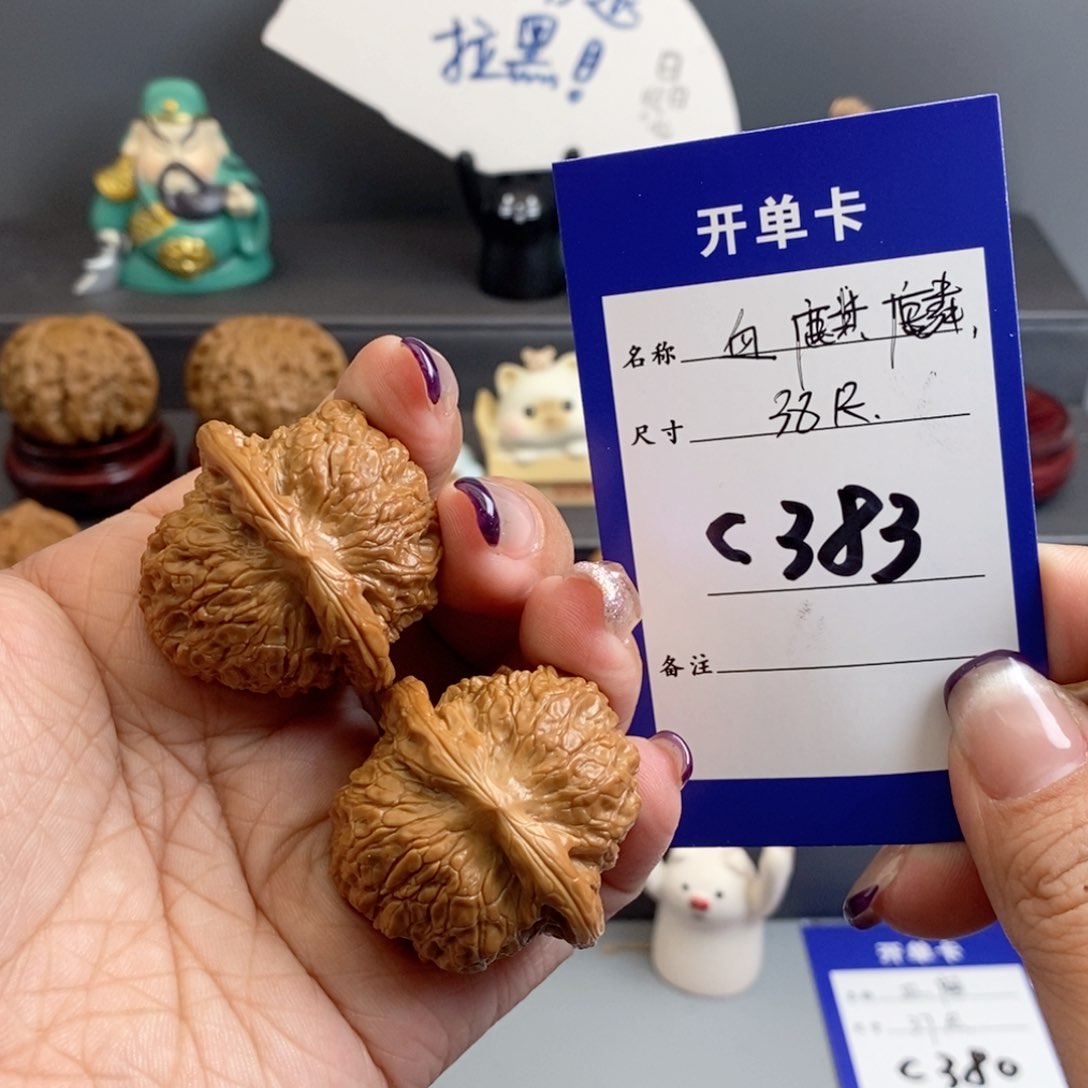 拉黑！
开单卡
名称 血麒麟,
尺寸 38R.
C383
备注
开单卡
C380